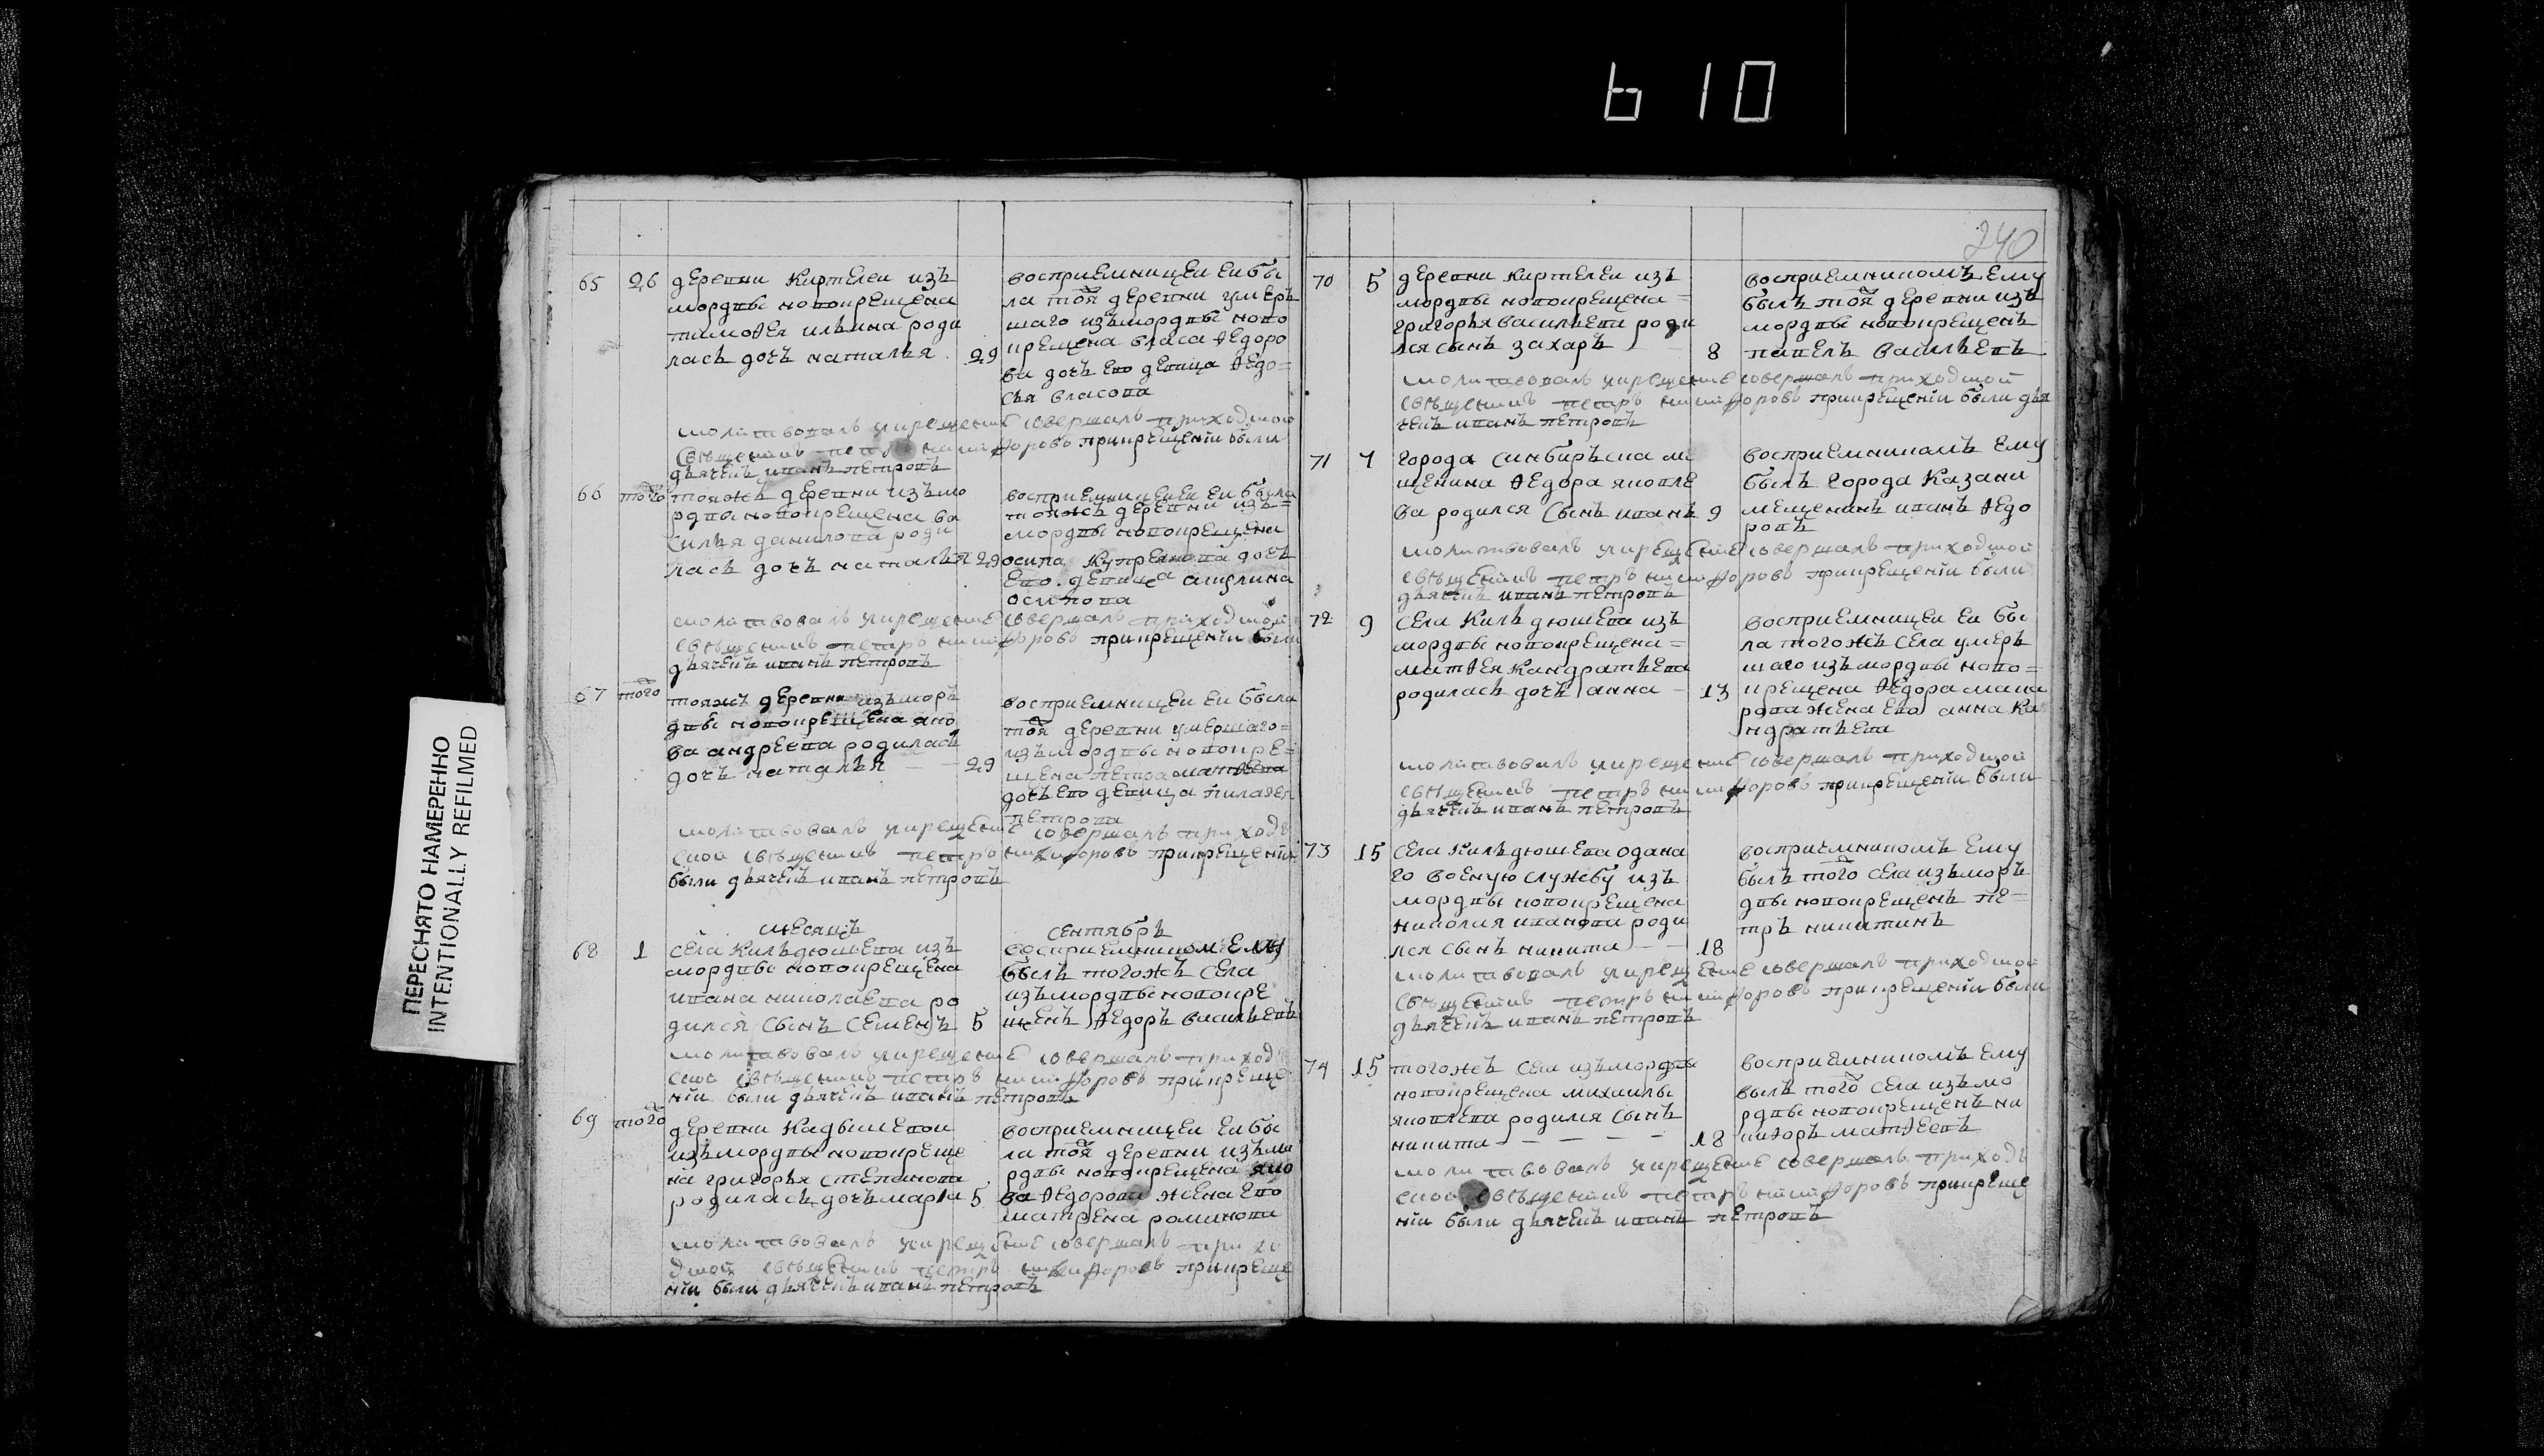 610
240
ПЕРЕСНЯТО НАМЕРЕННО
INTENTIONALLY REFILMED
65 26 деревни Киртелеи изъ
мордвы новокрещена
тимофея ильина роди
лась дочь наталья 29
восприемницеи еи бы
ла тоя ж деревни умерь
шаго изъ мордвы ново
крещена власа федоро
ва дочь ево девица федо=
сья власова
молитвовалъ и крещение совершалъ приходской
священникъ петръ никифоровъ при крещении были
дьячекъ иванъ петровъ
66 того ж тояжъ деревни изъ мо
рдвы новокрещена ва
силья данилова роди
лась дочь наталья 29
восприемницеи еи была
тояжъ деревни изъ=
мордвы новокрещена
осипа купреянова дочь
ево девица акулина
осипова
молитвовалъ и крещение совершалъ приходской
священникъ петръ никифоровъ при крещении были
дьячекъ иванъ петровъ
67 того ж тояжъ деревни изъ морь
двы новокрещена яко
ва андреева родилась
дочь наталья 29
восприемницеи еи была
тоя ж деревни умершаго=
изъ мордвы новокре=
щена петра матвева
дочь ево девица пилагея
петрова
молитвовалъ и крещение совершалъ приходь
скои священникъ петръ никифоровъ при крещении
были дьячекъ иванъ петровъ
месяцъ сентябрь
68 1 села Кильдюшева изъ
мордвы новокрещена
ивана николаева ро
дился сынъ семенъ 5
восприемникомъ ему
былъ тогожъ села
изъ мордвы новокре
щенъ федоръ васильевъ
молитвовалъ и крещение совершалъ приходь
скои священникъ петръ никифоровъ при креще
нии были дьячекъ иванъ петровъ
69 того ж деревни Кадышевои
изъ мордвы новокреще
на григорья степанова
родилась дочь марья 5
восприемницеи еи бы
ла тоя ж деревни изъ мо
рдвы новокрещена яко
ва федорова жена ево
матрена романова
молитвовалъ и крещение совершалъ прихо
дской священникъ петръ никифоровъ при креще
нии были дьячекъ иванъ петровъ
70 5 деревни киртелеи изъ
мордвы новокрещена=
григорья васильева роди
лся сынъ захаръ 8
восприемникомъ ему
былъ тоя ж деревни изъ
мордвы новокрещенъ
павелъ васильевъ
молитвовалъ и крещение совершалъ приходской
священникъ петръ никифоровъ при крещении были дья
чекъ иванъ петровъ
71 7 города синбирьска ме
щенина федора яковле
ва родился сынъ иванъ 9
восприемникомъ ему
былъ города Казани
мещенинъ иванъ федо
ровъ
молитвовалъ и крещение совершалъ приходской
священникъ петръ никифоровъ при крещении были
дьячекъ иванъ петровъ
72 9 села Кильдюшева изъ
мордвы новокрещена=
матфея Кандратьева
родилась дочь анна - 13
восприемницеи еи бы
ла тогожъ села умерь
шаго изъ мордвы ново=
крещена федора мака
рова жена ево анна Ка
ндратьева
молитвовалъ и крещение совершалъ приходской
священникъ петръ никифоровъ при крещении были
дьячекъ иванъ петровъ
73 15 села Кильдюшева одана
го военую службу изъ
мордвы новокрещена
николая иванова роди
лся сынъ никита - - 18
восприемникомъ ему
былъ того ж села изъ морь
двы новокрещенъ пе=
тръ никитинъ
молитвовалъ и крещение совершалъ приходской
священникъ петръ никифоровъ при крещении были
дьячекъ иванъ петровъ
74 15 тогожъ села изъ мордвы
новокрещена михаилы
яковлева родился сынъ
никита - - - - 18
восприемникомъ ему
былъ того ж села изъ мо
рдвы новокрещенъ ни
кифоръ матфеевъ
молитвовалъ и крещение совершалъ приходь
скои священникъ петръ никифоровъ при креще
нии были дьячекъ иванъ петровъ